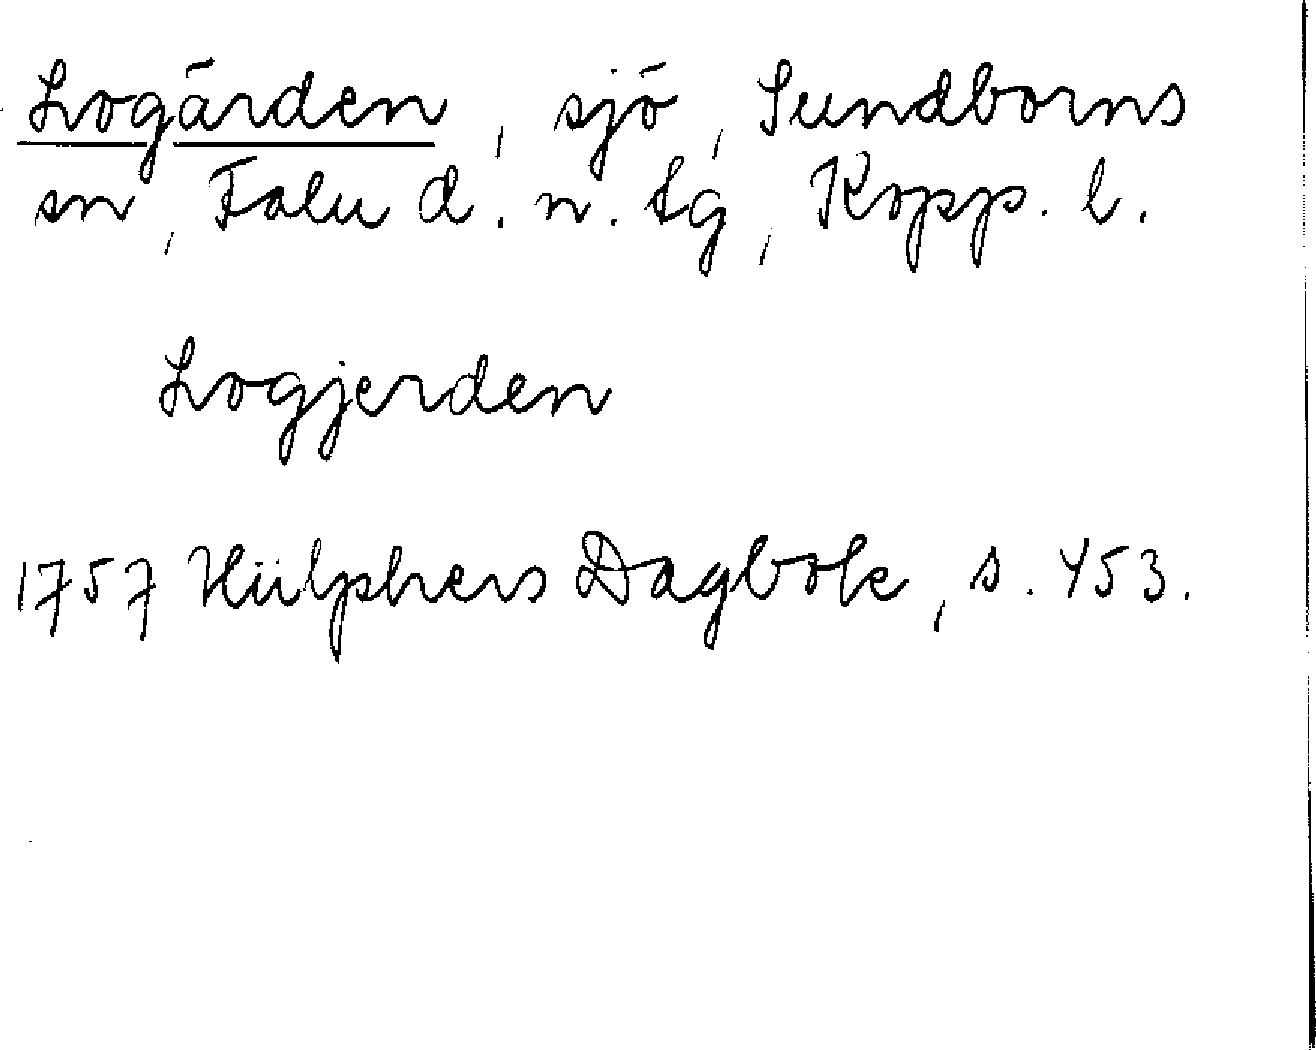 Logärden, sjö, Sundborns
sn, Falu d. n. tg, Kopp. l.
Logjerden
1757 Hülphers Dagbok, s. 453.